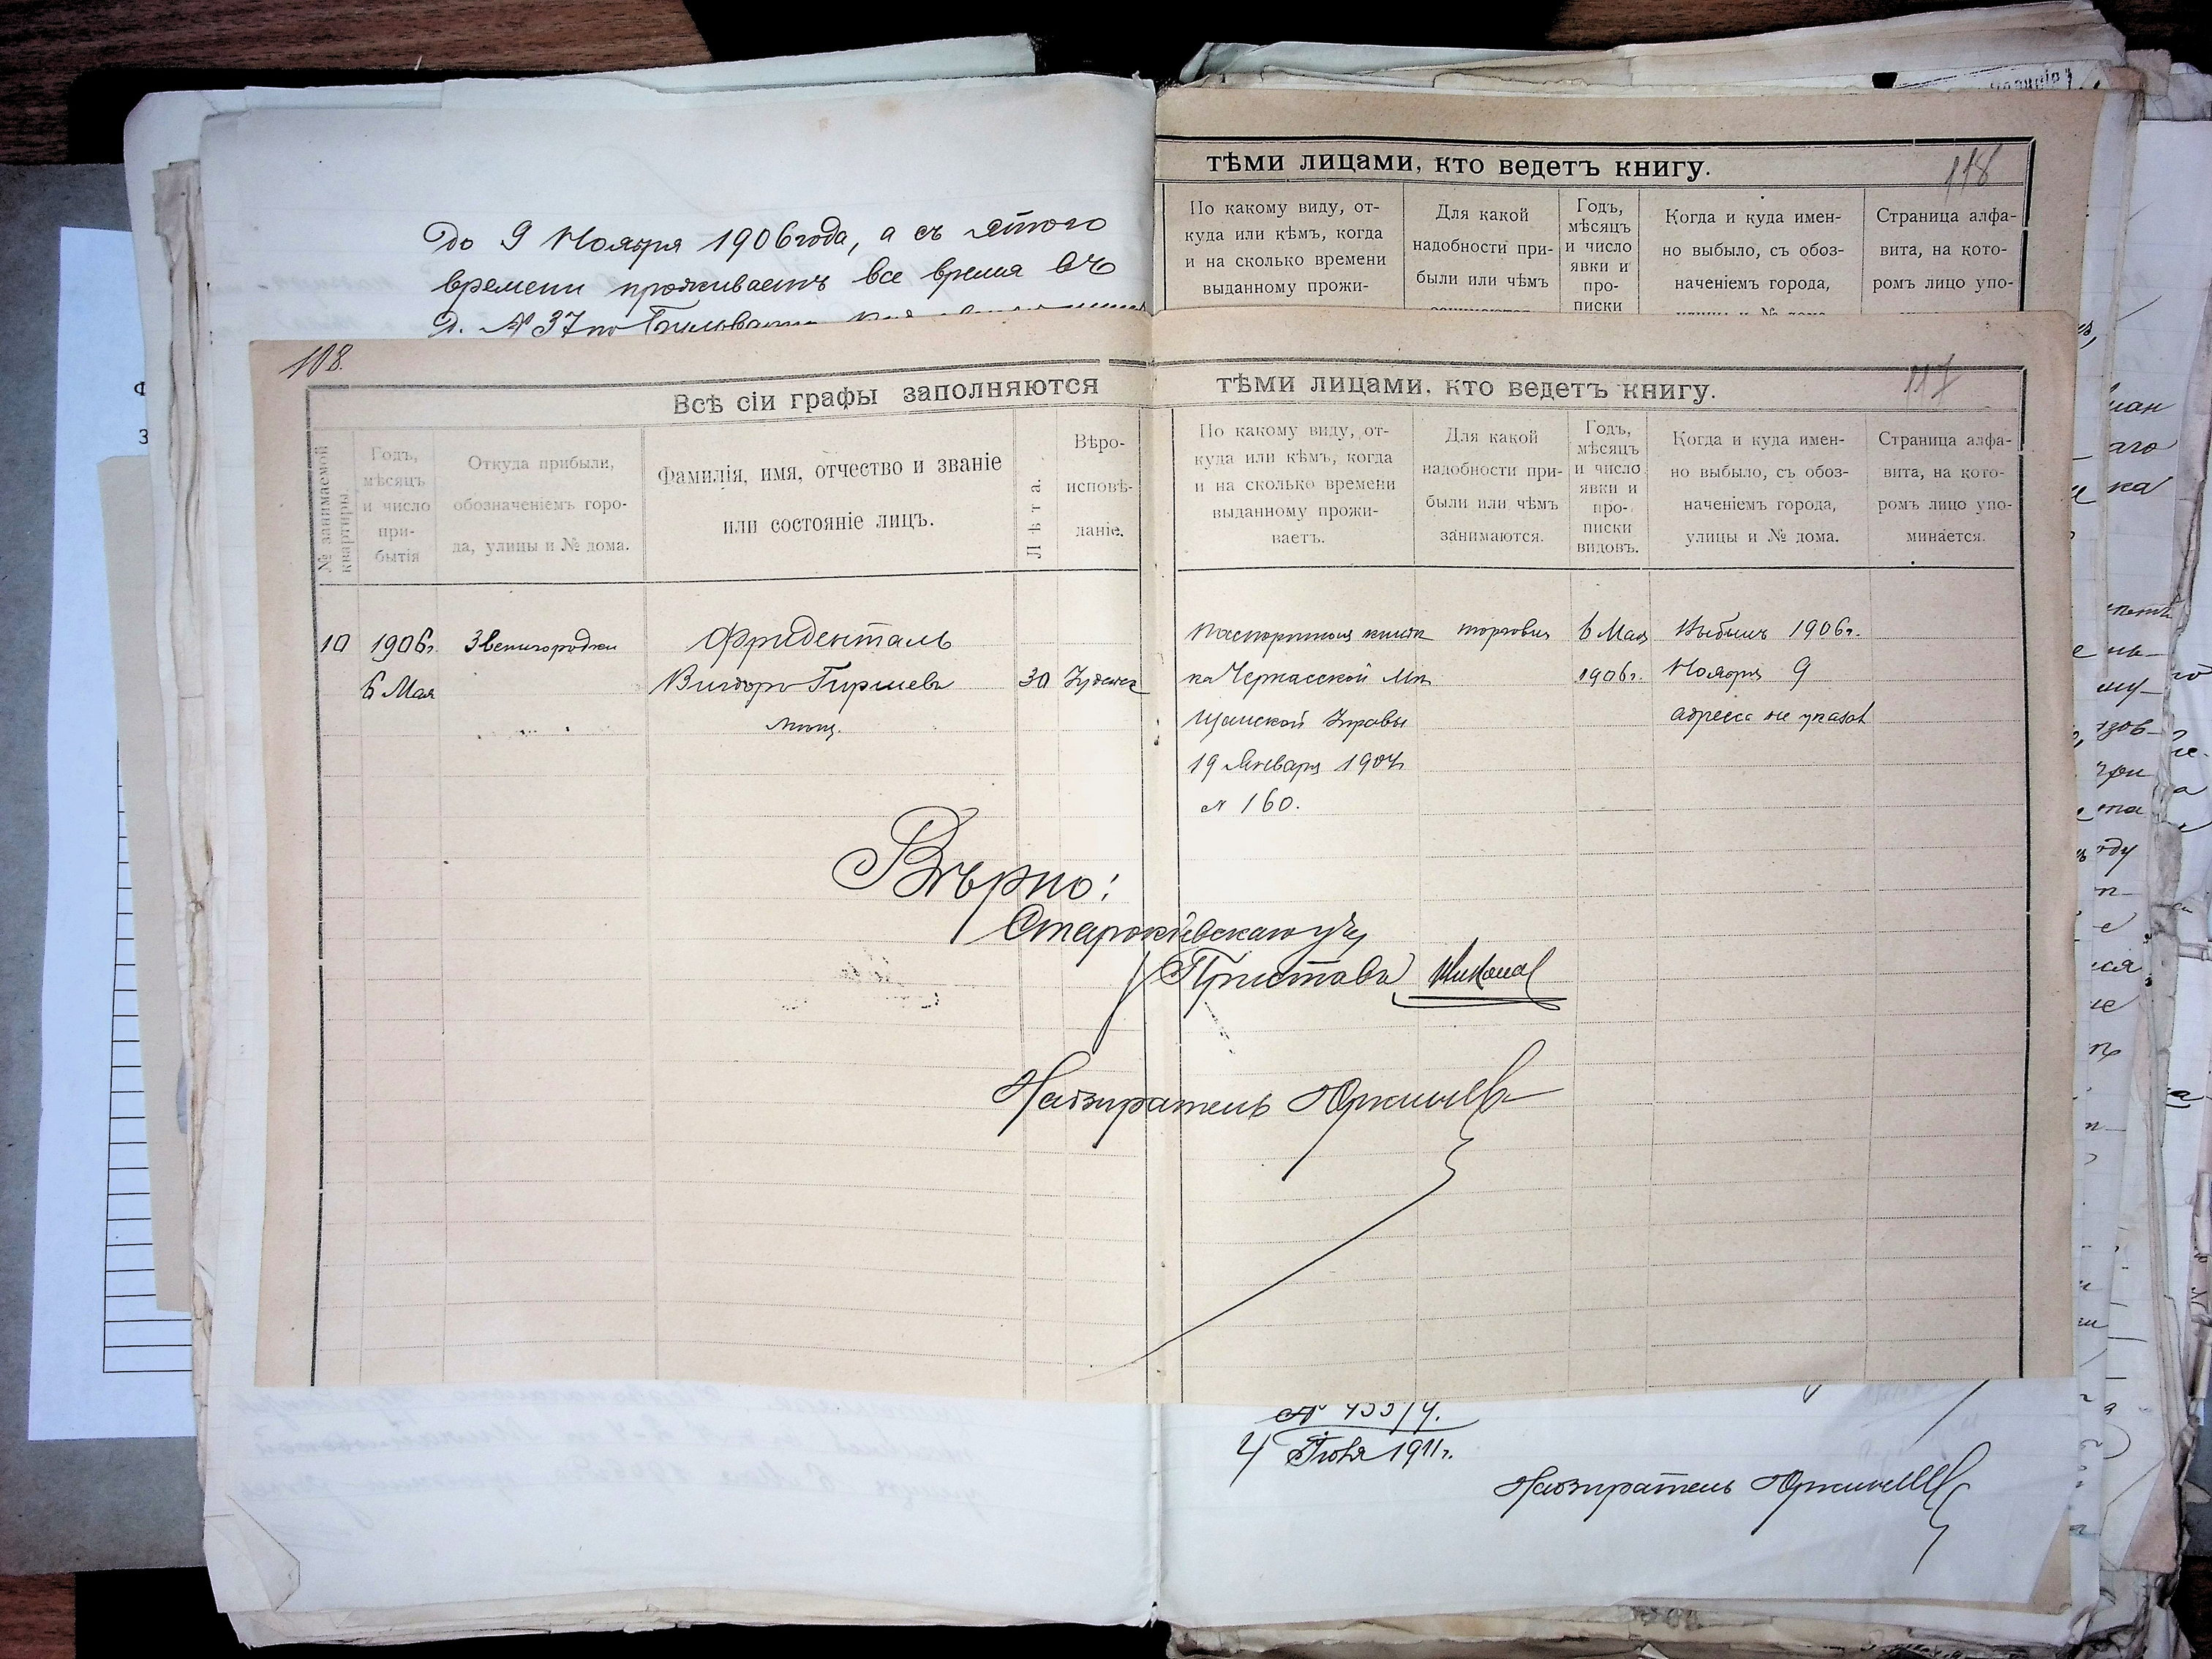 до 9 Ноября 1906 года, а съ этого
времени проживаетъ все время въ
д. № 37 по
тѣми лицами, кто ведетъ книгу.
118
По какому виду, от-
куда или кѣмъ, когда
и на сколько времени
выданному прожи-
Для какой
надобности при-
были или чѣмъ
занимаются
Годъ,
мѣсяцъ
и число
явки и
про-
писки
Когда и куда имен-
но выбыло, съ обоз-
наченіемъ города,
улицы и № дома
Страница алфа-
вита, на кото-
ромъ лицо упо-
108.
117
Всѣ сіи графы заполняются тѣми лицами, кто ведетъ книгу.
№ занимаемой
квартиры.
Годъ,
мѣсяцъ
и число
при-
бытія
Откуда прибыли,
обозначеніемъ горо-
да, улицы и № дома.
Фамилія, имя, отчество и званіе
или состояніе лицъ.
Лѣта.
Вѣро-
исповѣ-
даніе.
По какому виду, от-
куда или кѣмъ, когда
и на сколько времени
выданному прожи-
ваетъ.
Для какой
надобности при-
были или чѣмъ
занимаются.
Годъ,
мѣсяцъ
и число
явки и
про-
писки
видовъ.
Когда и куда имен-
но выбыло, съ обоз-
наченіемъ города,
улицы и № дома.
Страница алфа-
вита, на кото-
ромъ лицо упо-
минается.
10
1906г.
6 Мая
Звенигородки
Фриденталь
Вигдоръ Гиршевъ
мѣщ.
30
Іудейск
Паспортная книж
ка Черкасской Мѣ
щанской Управы
19 Января 1904
№ 160.
торговля
6 Мая
1906г.
Выбылъ 1906г.
Ноября 9
адресс не указал
Вѣрно:
Старокіевскаго уч
Приставъ
Надзиратель
4 Іюня 1911г.
Надзиратель